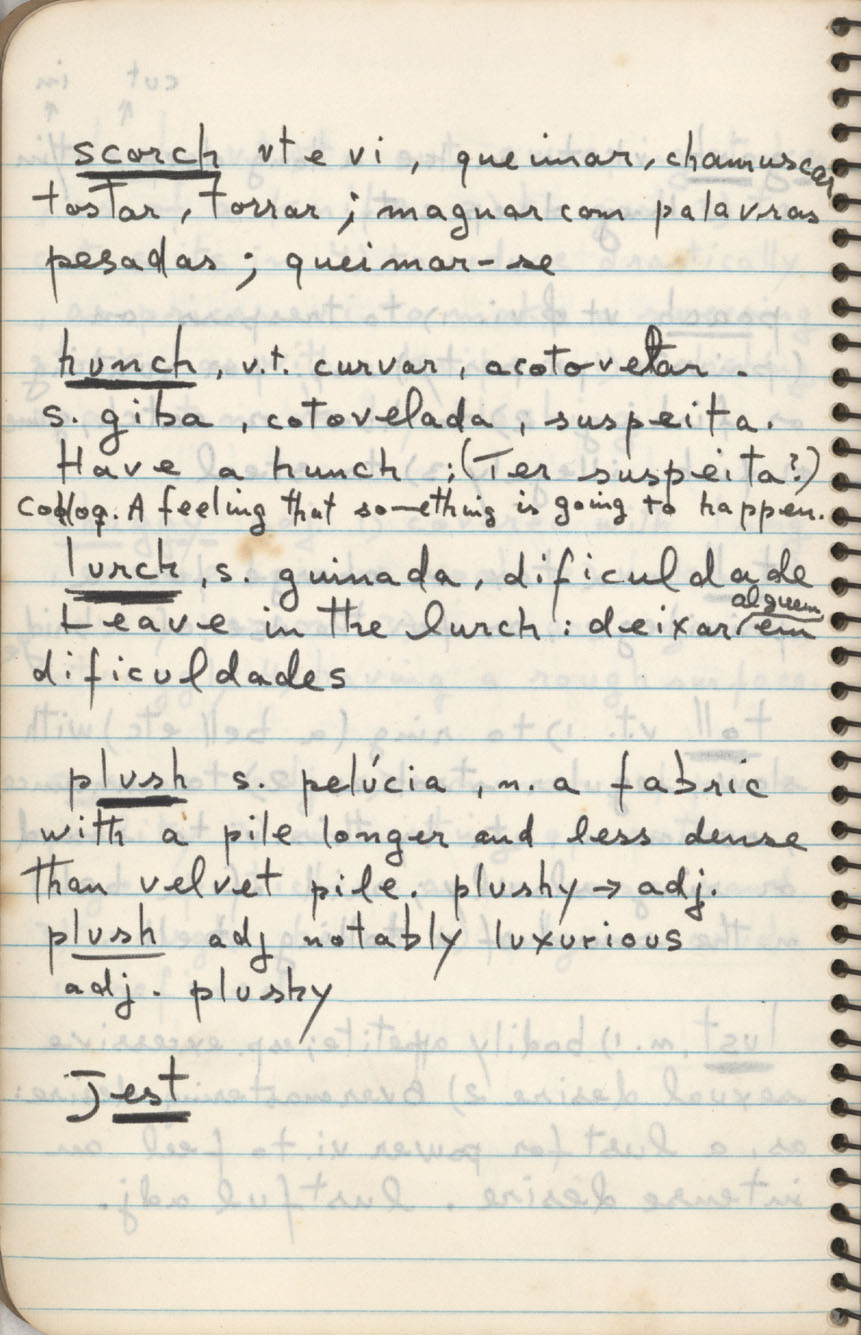 scorch vt e vi, queimar, chamuscar
tostar, torrar; maguar com palavras
pesadas; queimar-se
hunch, v.t. curvar, acotovelar.
s. giba, cotovelada, suspeita.
Have a hunch: (Ter suspeita?)
Colloq. A feeling that something is going to happen.
lurch, s. guinada, dificuldade
Leave in the lurch: deixar alguem em
dificuldades
plush s. pelúcia, n. a fabric
with a pile longer and less dense
than velvet pile. plushy → adj.
plush adj notably luxurious
adj. plushy
Jest